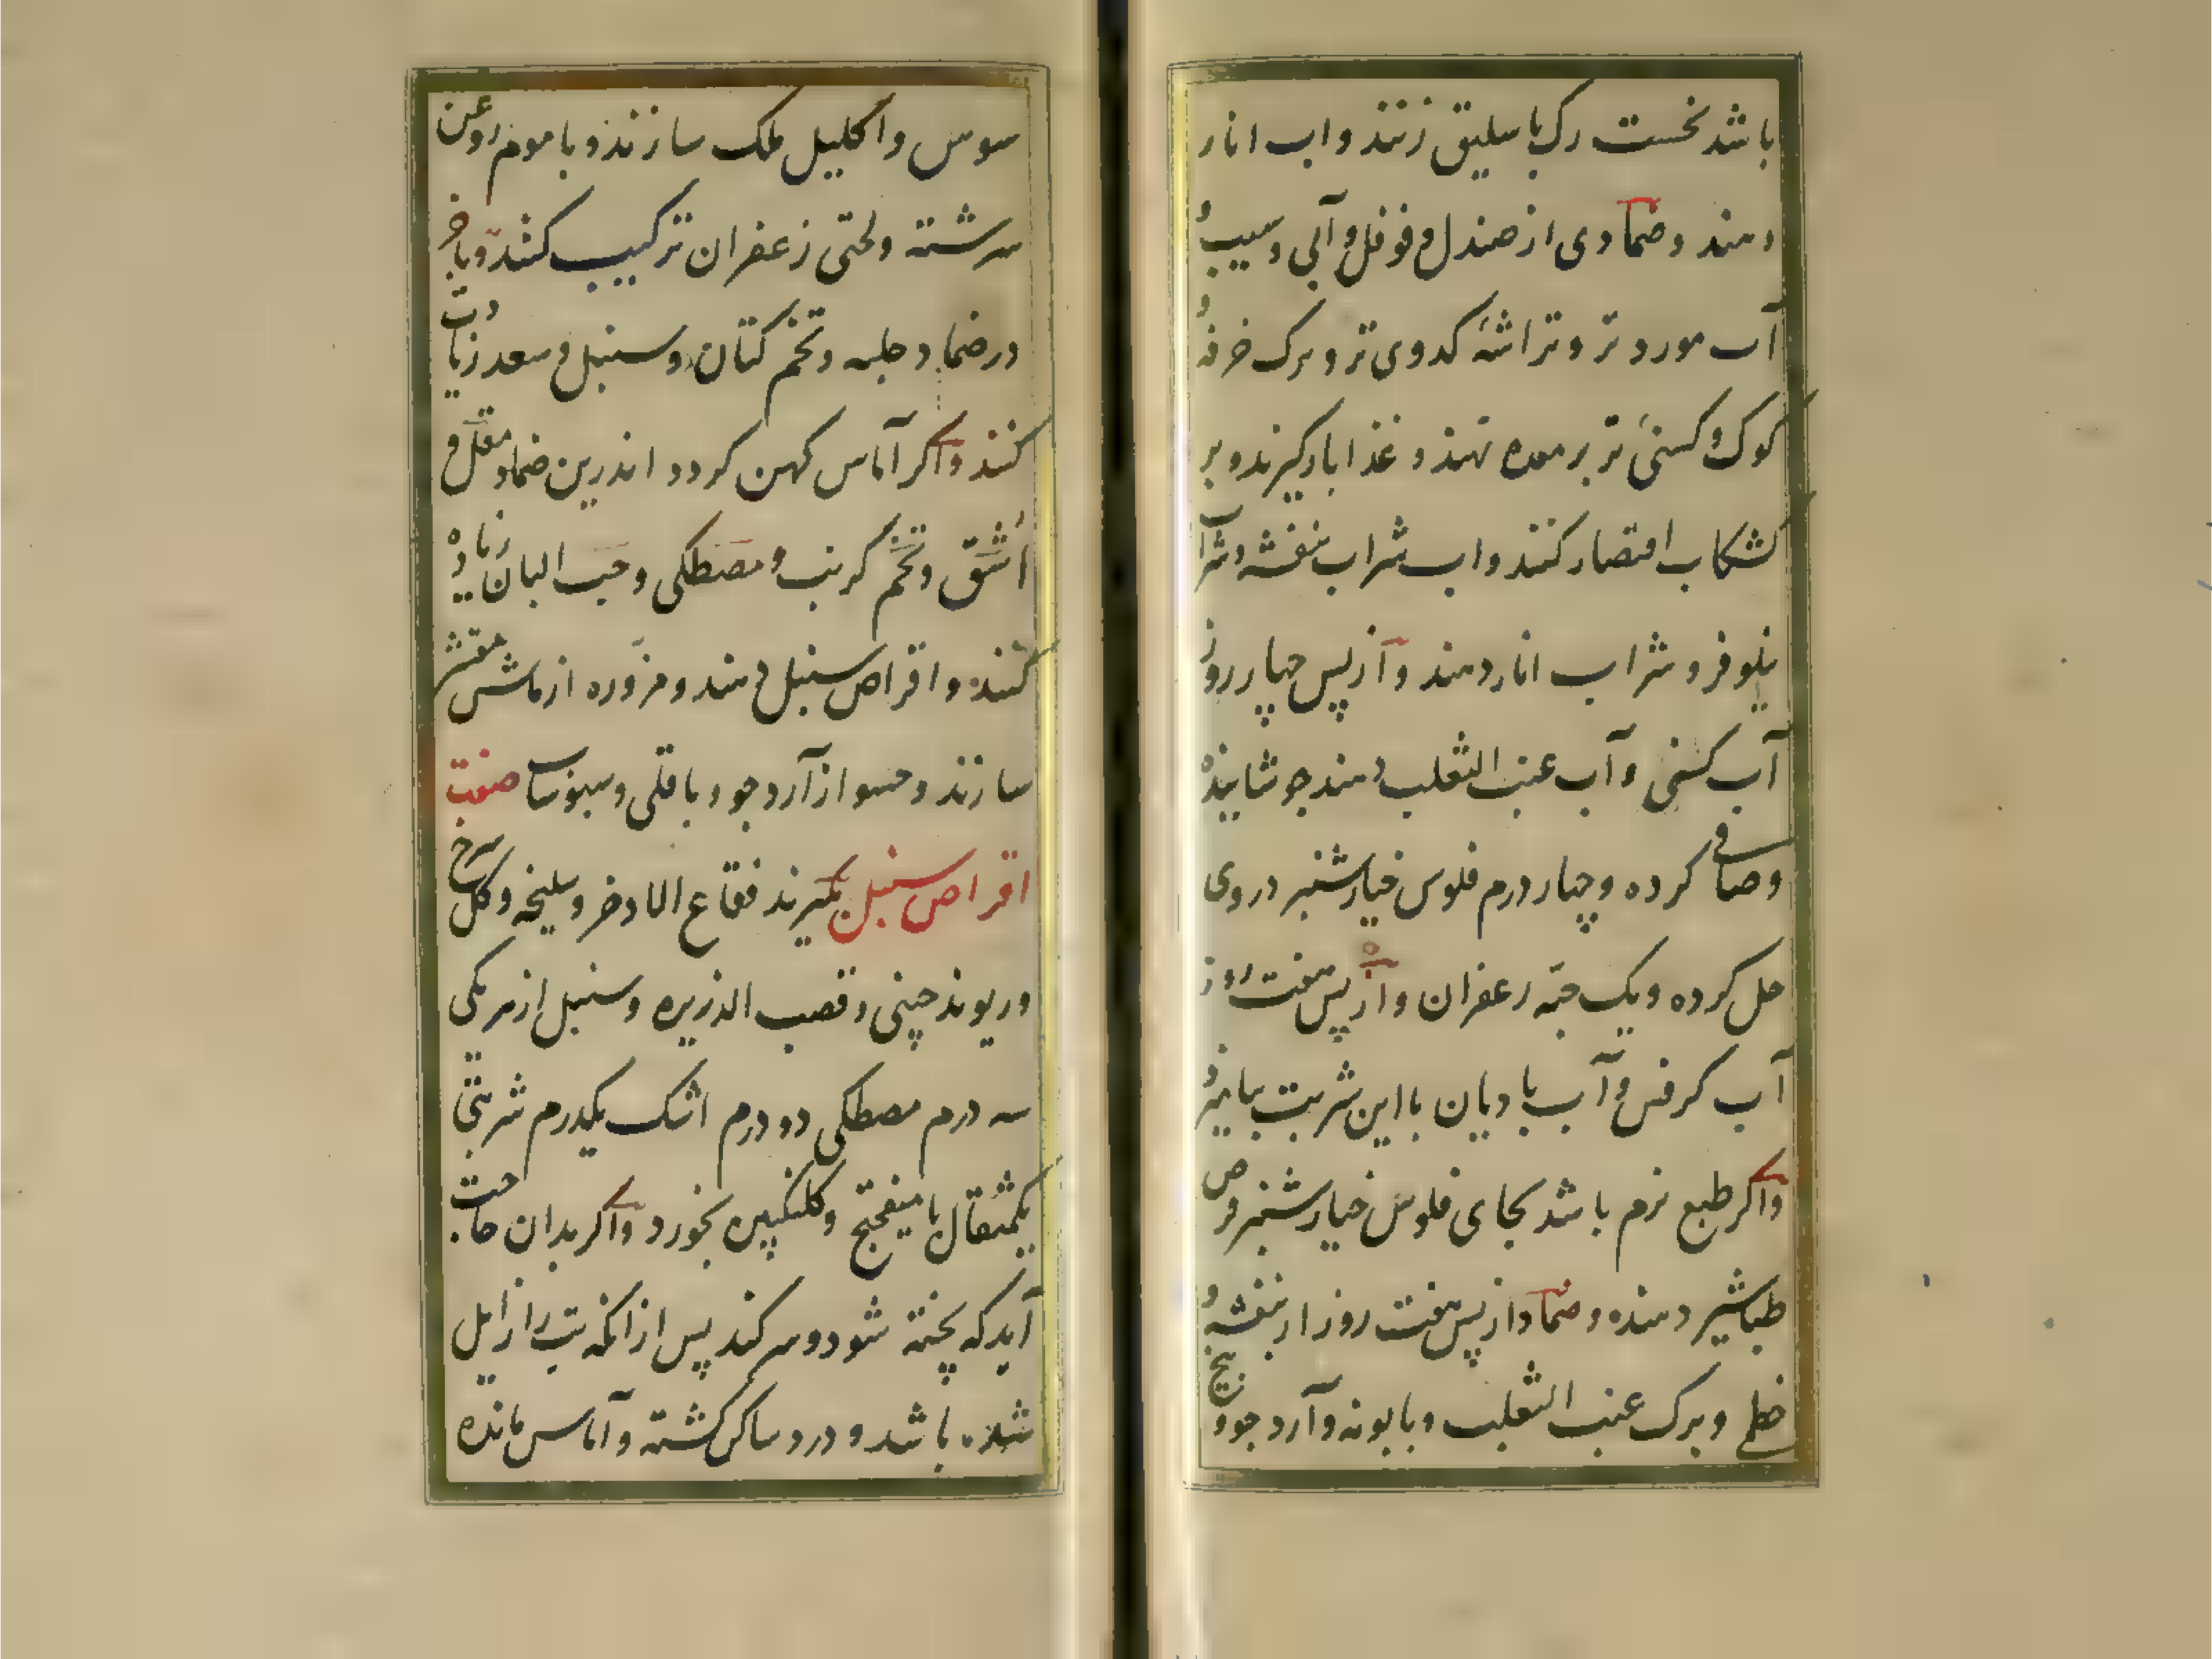 باشد نخست رک باسلیق زنند واب انار
دهند وضمادی از صندل و فوفل و آبی وسیب و
آب مورد تر و تراشهٔ کدوی تر و برک خرفه و
کوک و کسنی تر بر معده نهند و غذا باز کیرند و بر
کشکاب اقتصار کنند واب شراب بنفشه و شرا
نیلوفر و شراب انار دهند و از پس چهار روز
آب کسنی و آب عنب الثعلب دهند جوشانیده
وصافی کرده و چهار درم فلوس خیارشنبر در وی
حل کرده و یک حبه زعفران و از پس هفت روز
آب کرفس و آب بادیان با این شربت بیامیزند
واکر طبع نرم باشد بجای فلوس خیارشنبر قرص
طباشیر دهند و ضماد از پس هفت روز از بنفشه و
خطمی و برک عنب الثعلب و بابونه و آرد جو و بیخ
سوس واکلیل ملک سازند و با موم روغن
سرشته و لختی زعفران ترکیب کنند و باخر
در ضماد حلبه و تخم کتان و سنبل و سعد زیادت
کنند واکر آماس کهن کردد اندرین ضماد مقل و
اشق و تخم کرنب و مصطکی و حب البان زیاده
کنند و اقراص سنبل دهند و مزوره از ماش مقشر
سازند و حسو از آرد جو و باقلی و سبوساب صفت
اقراص سنبل بکیرند فقاع الاذخر و سلیخه و کل سرخ
و ریوند چینی و قصب الذریره و سنبل از هر یکی
سه درم مصطکی دو درم اشک یکدرم شربتی
یکمثقال با میفختج و کلنکبین بخورد واکر بدان حاجت
آید که پخته شود و سر کند پس از انکه تب زایل
شده باشد و درد ساکن کشته و آماس مانده